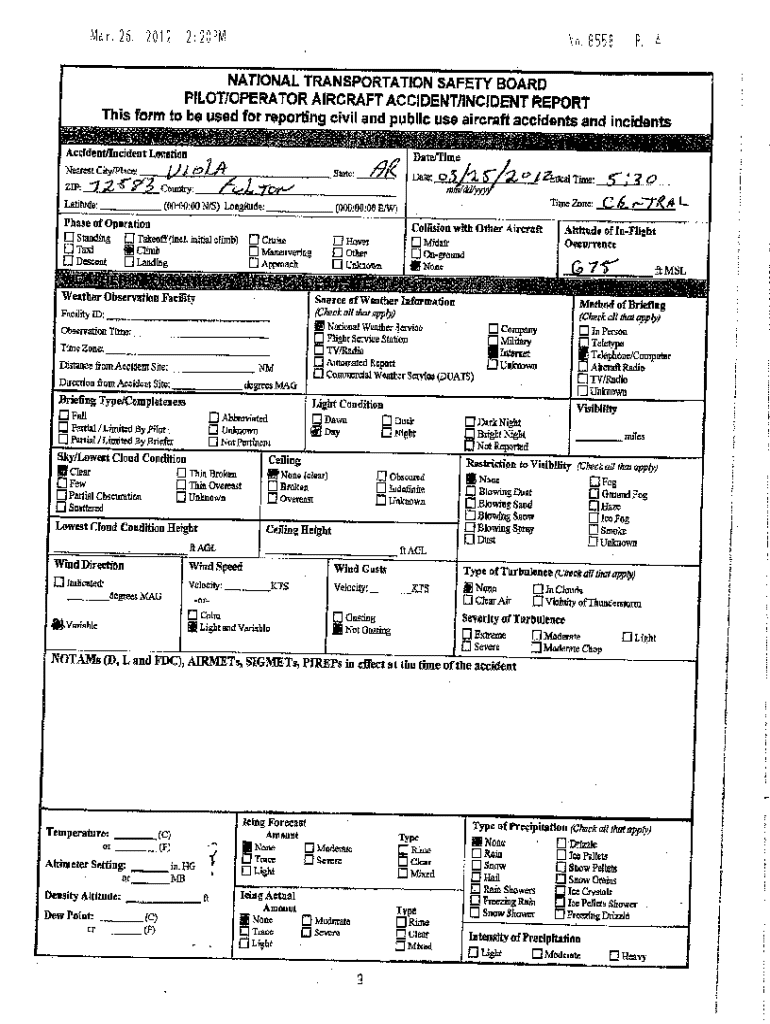 Mar. 26. 2012 2:20PM No. 8558 P. 4
NATIONAL TRANSPORTATION SAFETY BOARD
PILOT/OPERATOR AIRCRAFT ACCIDENT/INCIDENT REPORT
This form to be used for reporting civil and public use aircraft accidents and incidents
Accident/Incident Location
Nearest City/Place: VIOLA State: AR
ZIP: 72583 Country: FULTON
Latitude: (00:00:00 N/S) Longitude: (000:00:00 E/W)
Date/Time
Date: 03/25/2012 Local Time: 5:30
mm/dd/yyyy
Time Zone: CENTRAL
Phase of Operation
Standing Takeoff (incl. initial climb) Cruise Hover
Taxi Climb Maneuvering Other
Descent Landing Approach Unknown
Collision with Other Aircraft
Midair
On-ground
None
Altitude of In-Flight
Occurrence
675 ft MSL
Weather Observation Facility
Facility ID:
Observation Time:
Time Zone:
Distance from Accident Site: NM
Direction from Accident Site: degrees MAG
Source of Weather Information
(Check all that apply)
National Weather Service Company
Flight Service Station Military
TV/Radio Internet
Automated Report Unknown
Commercial Weather Service (DUATS)
Method of Briefing
(Check all that apply)
In Person
Teletype
Telephone/Computer
Aircraft Radio
TV/Radio
Unknown
Briefing Type/Completeness
Full Abbreviated
Partial / Limited By Pilot Unknown
Partial / Limited By Briefer Not Pertinent
Light Condition
Dawn Dusk Dark Night
Day Night Bright Night
Not Reported
Visibility
miles
Sky/Lowest Cloud Condition
Clear Thin Broken
Few Thin Overcast
Partial Obscuration Unknown
Scattered
Ceiling
None (clear) Obscured
Broken Indefinite
Overcast Unknown
Restriction to Visibility (Check all that apply)
None Fog
Blowing Dust Ground Fog
Blowing Sand Haze
Blowing Snow Ice Fog
Blowing Spray Smoke
Dust Unknown
Lowest Cloud Condition Height
ft AGL
Ceiling Height
ft AGL
Wind Direction
Indicated:
degrees MAG
Variable
Wind Speed
Velocity: KTS
-or-
Calm
Light and Variable
Wind Gusts
Velocity: KTS
Gusting
Not Gusting
Type of Turbulence (Check all that apply)
None In Clouds
Clear Air Vicinity of Thunderstorm
Severity of Turbulence
Extreme Moderate Light
Severe Moderate Chop
NOTAMs (D, L and FDC), AIRMETs, SIGMETs, PIREPs in effect at the time of the accident
Temperature: (C)
or (F)
Altimeter Setting: in. HG
or MB
Density Altitude: ft
Dew Point: (C)
or (F)
?
Icing Forecast
Amount Type
None Moderate Rime
Trace Severe Clear
Light Mixed
Icing Actual
Amount Type
None Moderate Rime
Trace Severe Clear
Light Mixed
Type of Precipitation (Check all that apply)
None Drizzle
Rain Ice Pellets
Snow Snow Pellets
Hail Snow Grains
Rain Showers Ice Crystals
Freezing Rain Ice Pellets Shower
Snow Shower Freezing Drizzle
Intensity of Precipitation
Light Moderate Heavy
3